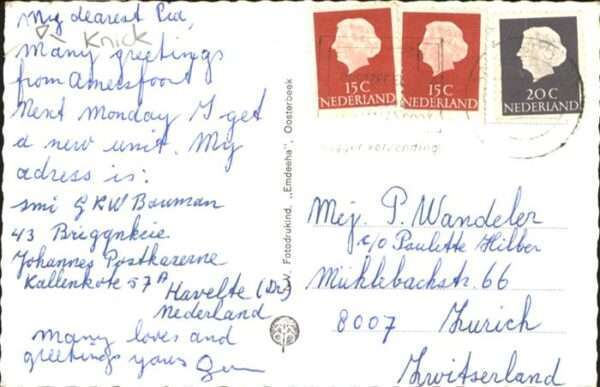 My dearest Pid,
Knick
Many greetings
from Amersfoort
Next Monday I get
a new unit. My
adress is:
smi GRW Bouman
43 Briggnkeie
Johannes Postkazerne
Kallenkote 57A
Havelte (Dr)
Nederland
Many loves and
greetings yours
N.V. Fotodrukind. „Emdeeha", Oosterbeek
15 C
NEDERLAND
15 C
NEDERLAND
20 C
NEDERLAND
Mej. P. Wandeler
c/o Paulette Hilber
Mühlebachstr. 66
8007 Zurich
Zwitserland